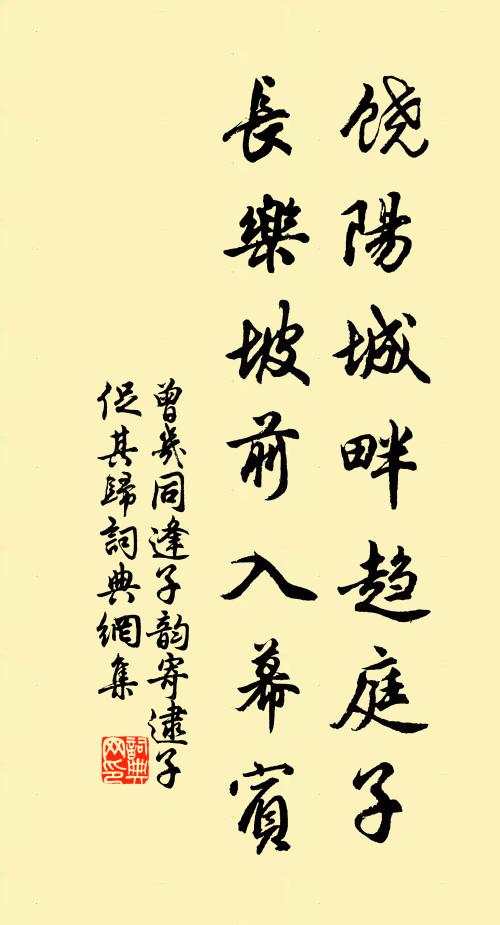 饶陽城畔趋庭子
長樂坡前入幕賓
曾幾同逢子韵寄逮子
促其歸詞典網集
詞典
网印